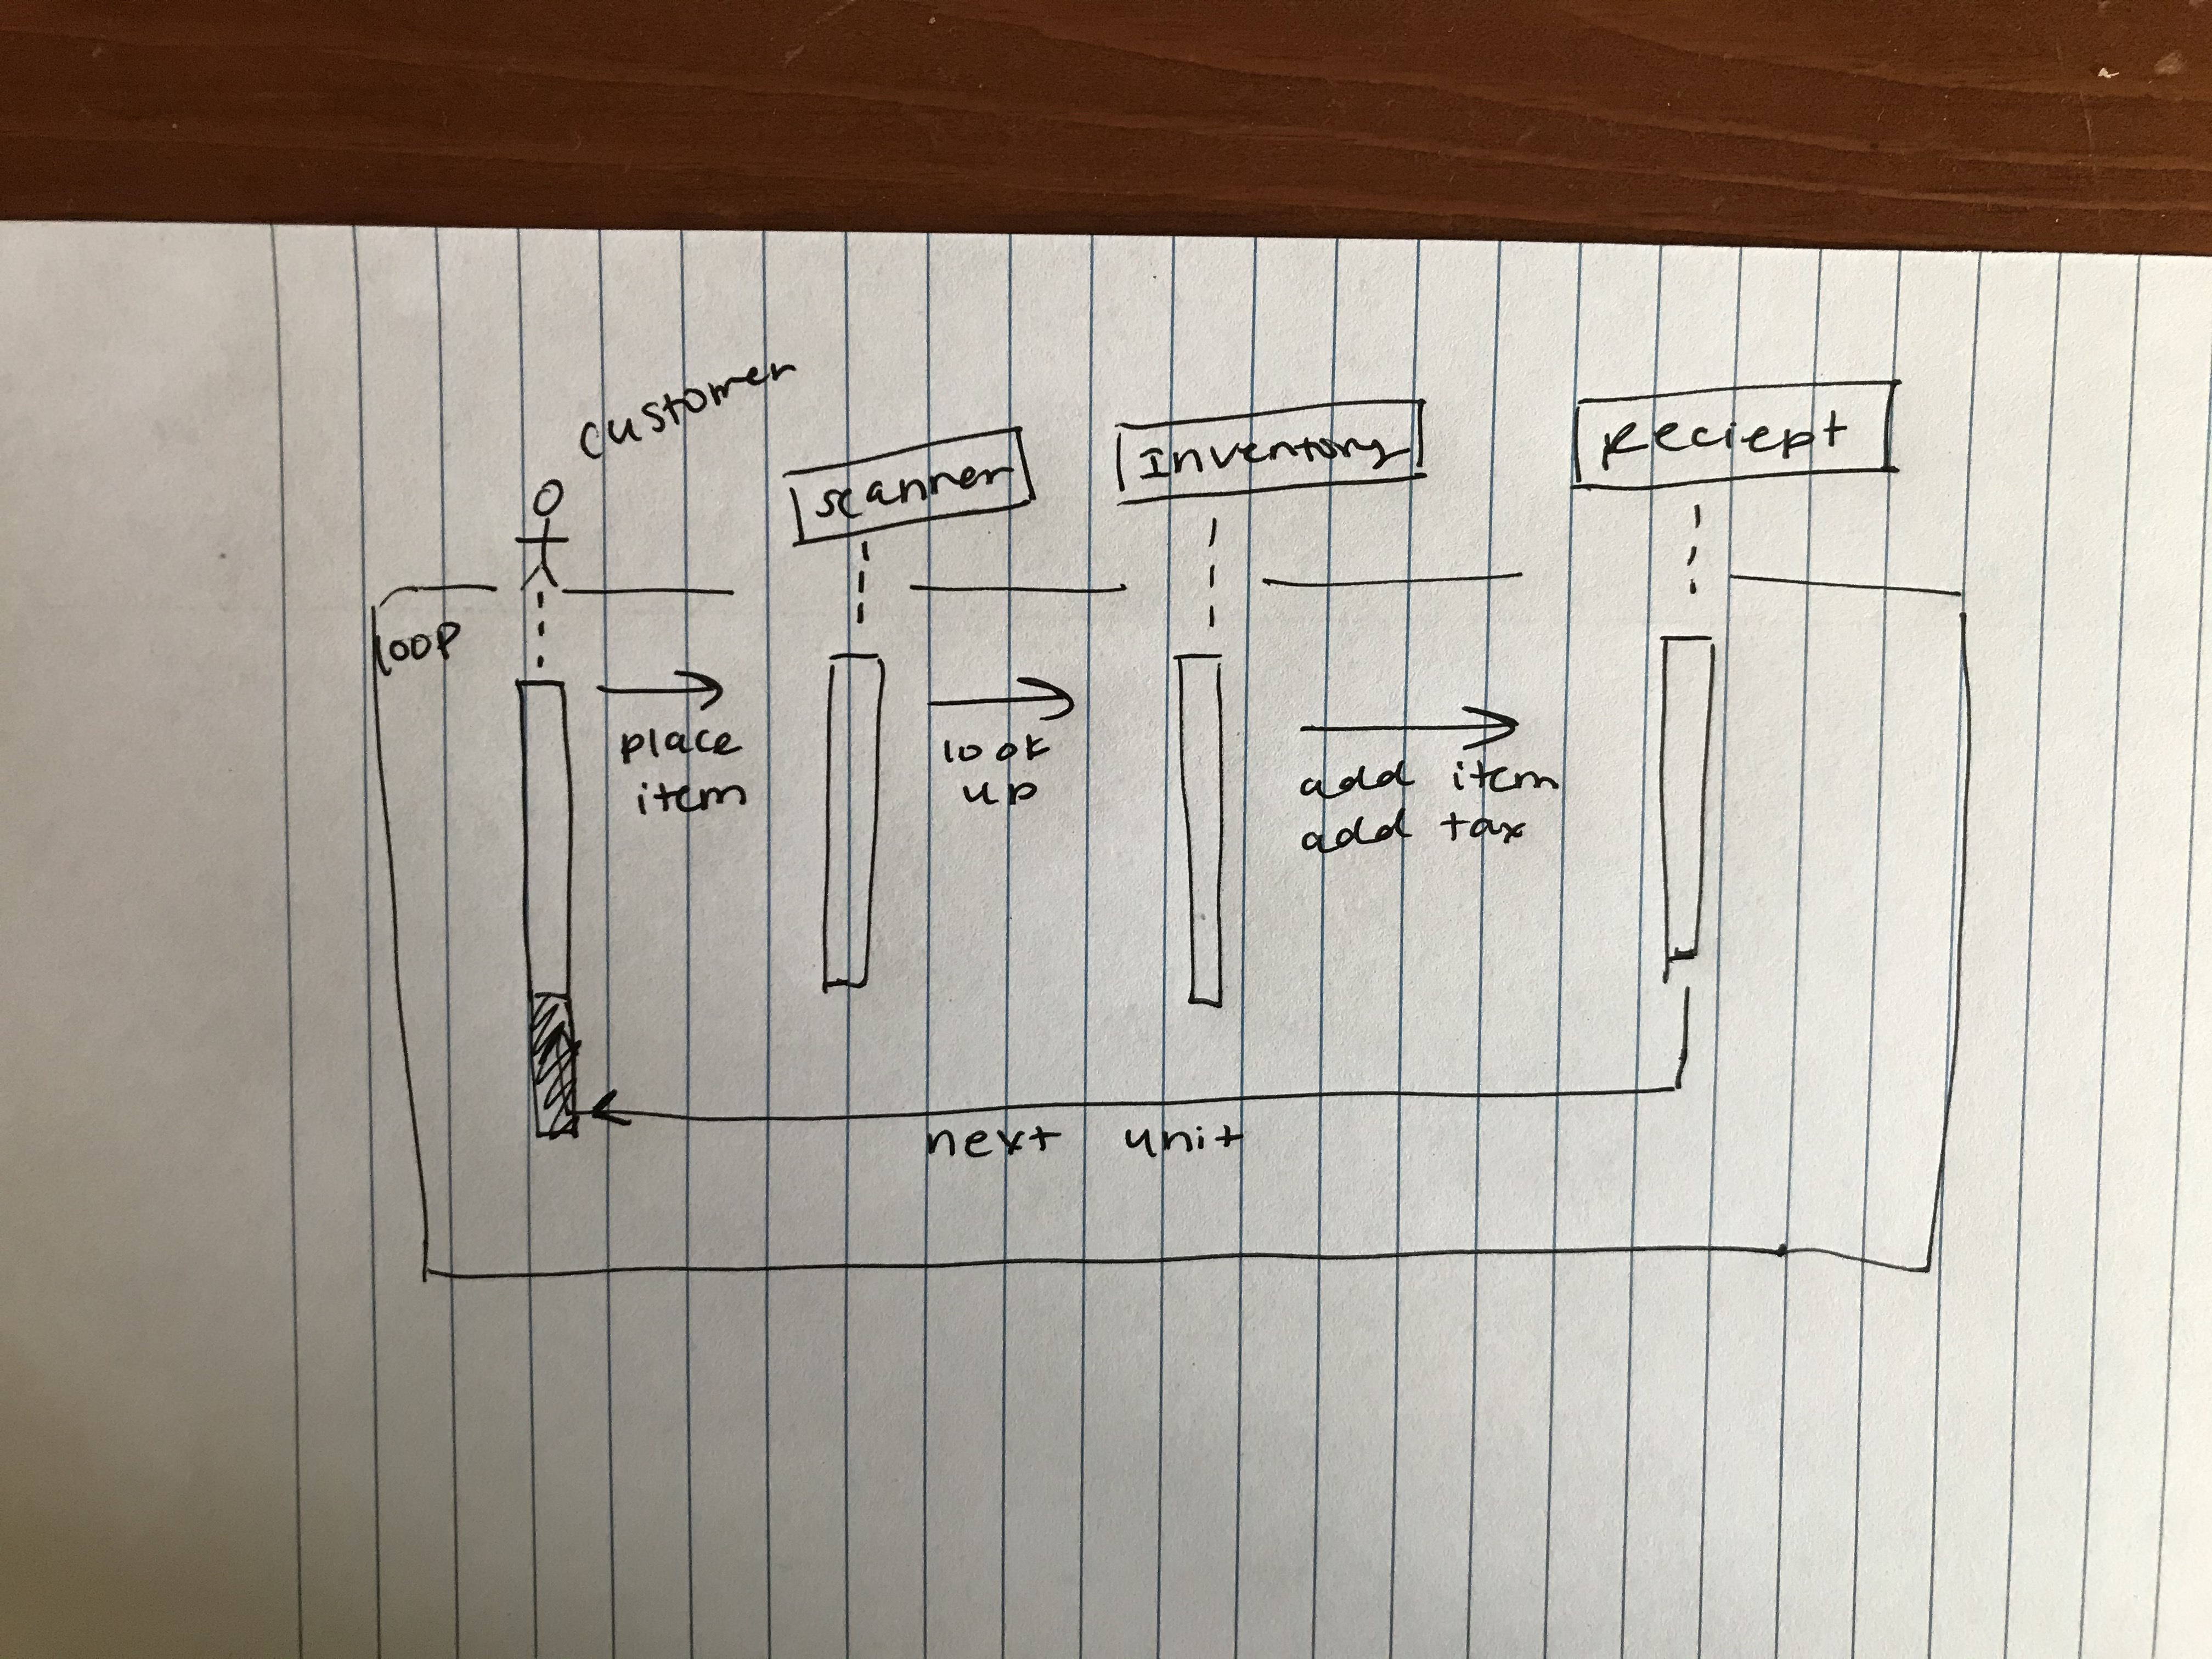 customer
scanner
Inventory
Reciept
loop
place
item
look
up
add item
add tax
next unit